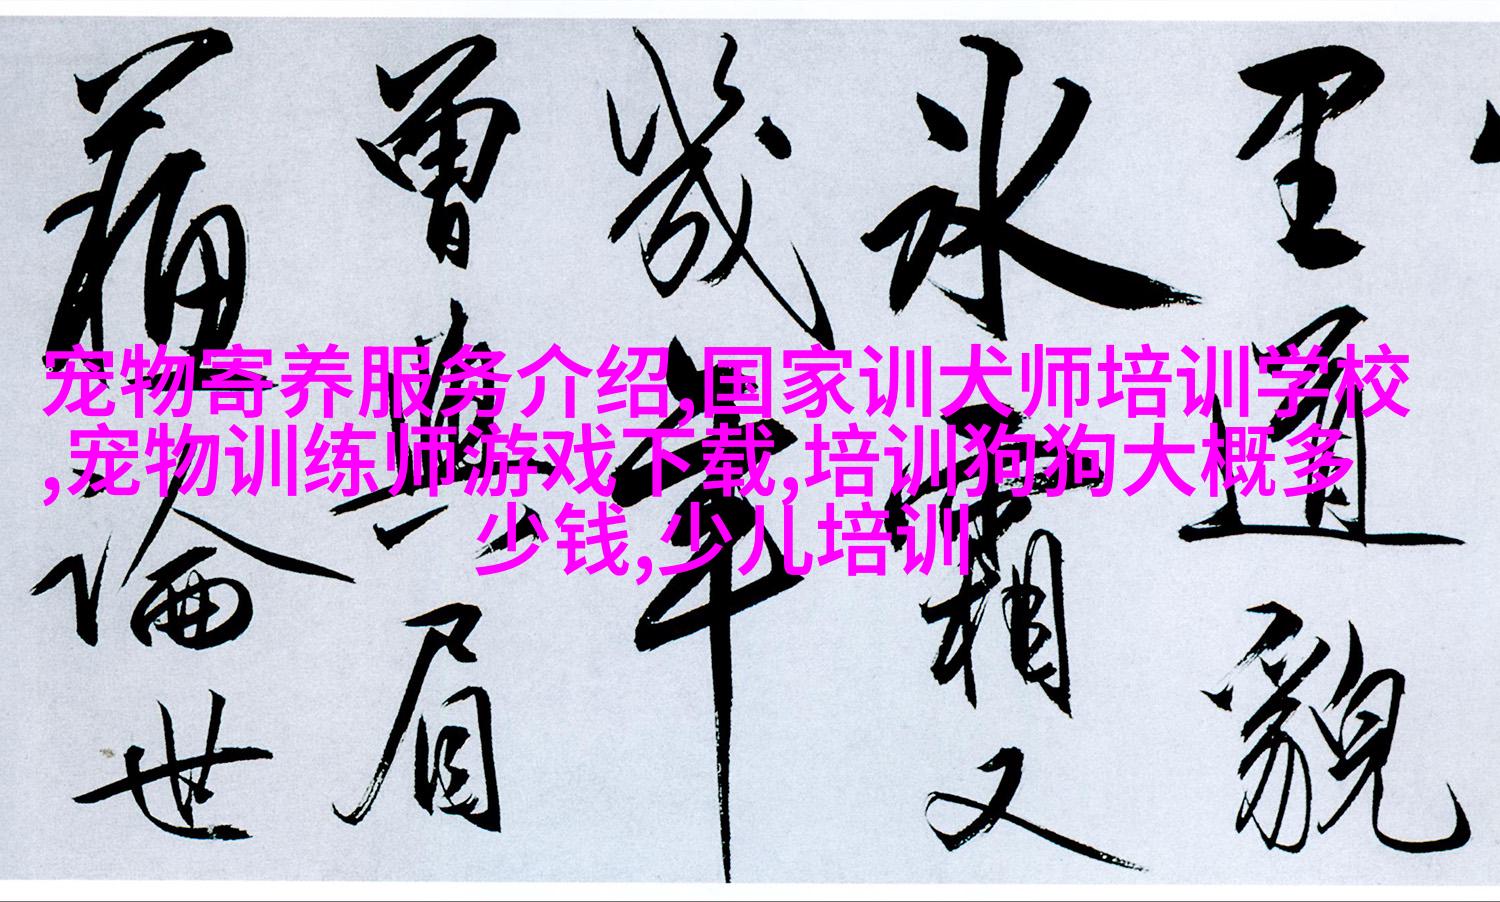 宠物寄养服务介绍,国家训犬师培训学校
,宠物训练师游戏下载,培训狗狗大概多
少钱,少儿培训
里通貌
氷霜又
幾年
曾與眉
論世